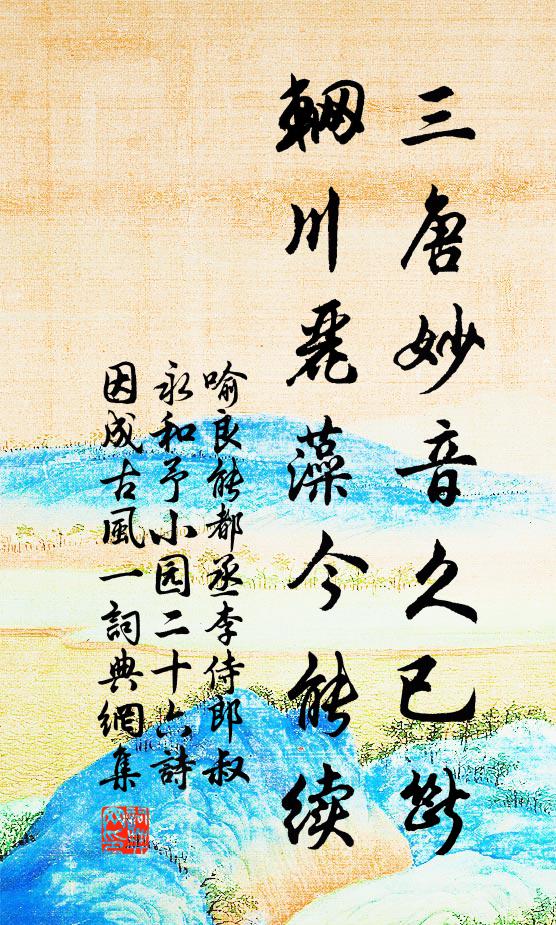 三唐妙音久已斷
輞川麗藻今能續
喻良能都丞李侍郎叔
永和予小园二十六詩
因成古風一詞典網集